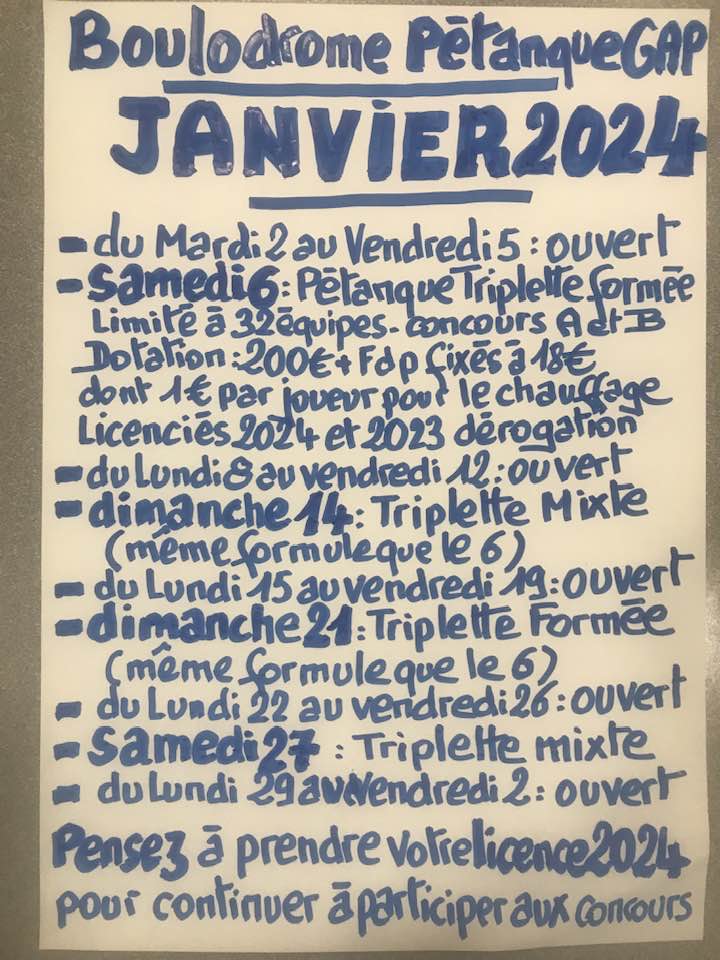 Boulodrome Pétanque GAP
JANVIER 2024
- du Mardi 2 au Vendredi 5 : ouvert
- Samedi 6 : Pétanque Triplette formée
Limité à 32 équipes - concours A et B
Dotation : 200€ + Fdp fixés à 18€
dont 1€ par joueur pour le chauffage
Licenciés 2024 et 2023 dérogation
- du Lundi 8 au vendredi 12 : ouvert
- dimanche 14 : Triplette Mixte
(même formule que le 6)
- du Lundi 15 au vendredi 19 : ouvert
- dimanche 21 : Triplette Formée
(même formule que le 6)
- du Lundi 22 au vendredi 26 : ouvert
- Samedi 27 : Triplette mixte
- du Lundi 29 au Vendredi 2 : ouvert
Pensez à prendre votre licence 2024
pour continuer à participer aux concours